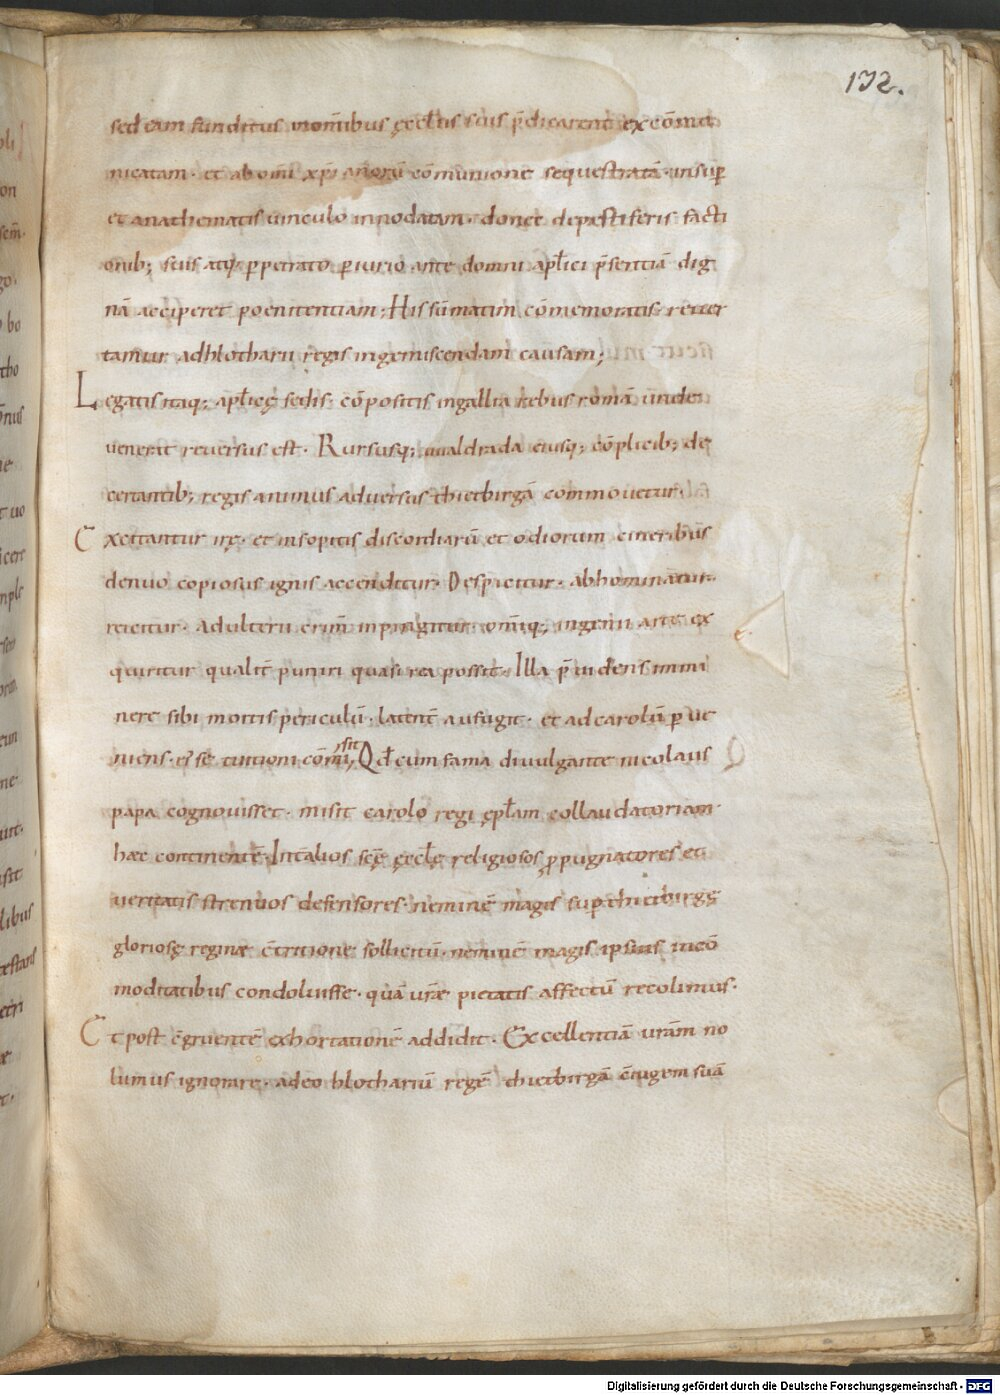 132.
sed eam funditus inom̄ibus ęccl̄iis suis p̄dicarent excōmu
nicatam· et ab om̄i xp̄ianorū cōmunione sequestratā· insup̄
et anathematis uinculo innodatam· donec depestiferis facti
onib; suis atq; ꝑpetrato ꝑiurio ante domni apl̄ici p̄sentiā dig
nā acciperet poenitentiam; His sūmatim cōmemoratis· reuer
tamur adhlotharii regis ingemiscendam causam;
Legatis itaq; apl̄icę sedis· cōpositis ingallia rebus romā unde
uenerat reuersus est· Rursusq; uualdrada eiusq; cōplicib; de
certantib; regis animus aduersus thietbirgā commouetur·
Excitantur irę· et insopitis discordiarū et odiorum cineribus
denuo copiosus ignis accenditur· Despicitur· abhominatur·
reicitur· adulterii crim̄ inpingitur· om̄iq; ingenii arte ex
quiritur qualit̄ puniri quasi rea possit· Illa p̄uidens immi
nere sibi mortis periculū· latent̄ aufugit· et adcarolū ꝑue
niens· eʳ se tuitioni cōmisit; Qd̄ cum fama diuulgante nicolaus
papa cognouisset· misit carolo regi epl̄am collaudatoriam
hęc continentē· Int̄alios scę̄ ęccl̄ę religiosos ꝓpugnatores et
ueritatis strenuos defensores· neminē magis sup̄ thietbirgę
gloriosę reginæ c̄tritione sollicitū· neminē magis ipsius incō
moditatibus condoluisse· quā ur̄æ pietatis affectū recolimus·
Et post c̄gruentē exhortationē addidit· Excellentiā ur̄am no
lumus ignorare· adeo hlothariū regē thietbirgā c̄iugem suā
Digitalisierung gefördert durch die Deutsche Forschungsgemeinschaft - DFG